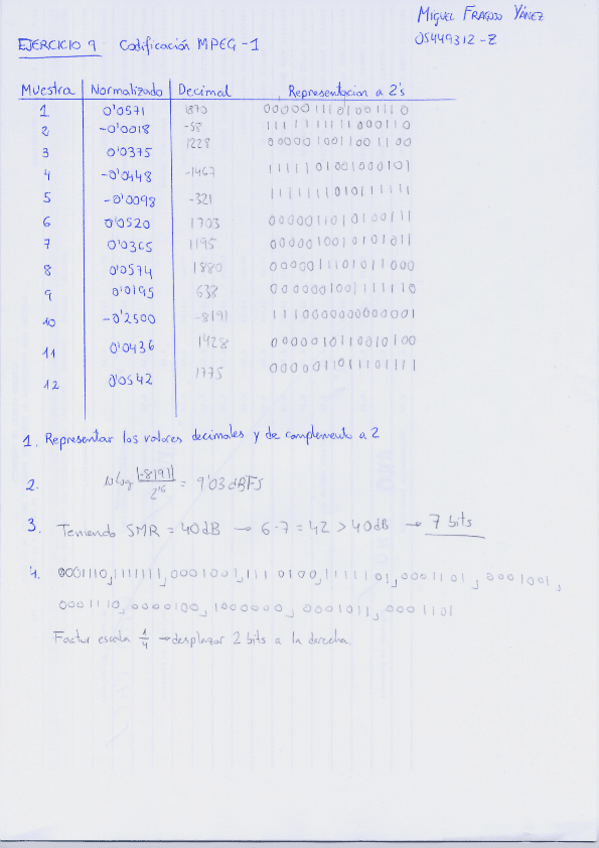 MIGUEL FRAGOSO YÁNEZ
05449312-Z
EJERCICIO 9 Codificación MPEG-1
Muestra Normalizado Decimal Representacion a 2's
1 0'0571 1870 0000011101001110
2 -0'0018 -58 1111111111000110
3 0'0375 1228 0000010011001100
4 -0'0448 -1467 1111101001000101
5 -0'0098 -321 1111111010111111
6 0'0520 1703 0000011010100111
7 0'0365 1195 0000010010101011
8 0'0574 1880 0000011101011000
9 0'0195 638 0000001001111110
10 -0'2500 -8191 1110000000000001
11 0'0436 1428 0000010110010100
12 0'0542 1775 0000011011101111
1. Representar los valores decimales y de complemento a 2
2. log |-8191| / 2^16 = 9'03 dBFS
3. Teniendo SMR = 40dB → 6·7 = 42 > 40dB → 7 bits
4. 0001110, 1111111, 0001001, 1110100, 1111101, 0001101, 0001001,
0001110, 0000100, 1000000, 0001011, 0001101
Factor escala 1/4 → desplazar 2 bits a la derecha